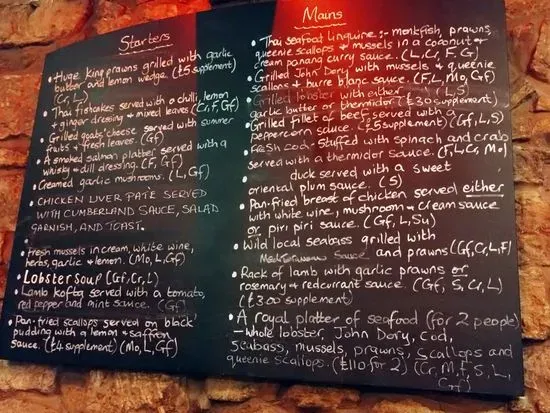 Starters
• Huge king prawns grilled with garlic
butter and lemon wedge. (£5 supplement)
(Cr, L)
• Thai fishcakes served with a chilli, lemon
& ginger dressing & mixed leaves. (Cr, F, Gf)
• Grilled goats' cheese served with summer
fruits & fresh leaves. (Gf)
• A smoked salmon platter served with a
whisky & dill dressing. (F, Gf)
• Creamed garlic mushrooms. (L, Gf)
• CHICKEN LIVER PATE SERVED
WITH CUMBERLAND SAUCE, SALAD
GARNISH, AND TOAST.
• Fresh mussels in cream, white wine,
herbs, garlic & lemon. (Mo, L, Gf)
• Lobster Soup (Gf, Cr, L)
• Lamb kofta served with a tomato,
red pepper and mint sauce. (Gf)
• Pan-fried scallops served on black
pudding with a lemon & saffron
sauce. (£4 supplement) (Mo, L, Gf)
Mains
• Thai seafood linguine :- monkfish, prawns,
queenie scallops & mussels in a coconut &
cream panang curry sauce. (L, C, F, G)
• Grilled John Dory with mussels & queenie
scallops & burre blanc sauce. (F, L, Mo, Gf)
• Grilled lobster with either (L, S)
garlic butter or thermidor (£30 supplement)
• Grilled fillet of beef served with a
peppercorn sauce. (£5 supplement) (Gf, L, S)
• fresh cod stuffed with spinach and crab
served with a thermidor sauce. (F, L, Cr, Mo)
• duck served with a sweet
oriental plum sauce. (S)
• Pan-fried breast of chicken served either
with white wine, mushroom & cream sauce
or piri piri sauce. (Gf, L, Su)
• Wild local seabass grilled with
Mediterranean sauce and prawns (Gf, Cr, L, F)
• Rack of lamb with garlic prawns or
rosemary & redcurrant sauce. (Gf, S, Cr, L)
(£3.00 supplement)
• A royal platter of seafood (for 2 people)
- whole lobster, John Dory, Cod,
seabass, mussels, prawns, scallops and
queenie scallops. (£110 for 2) (Cr, M, F, S, L,
Gf)